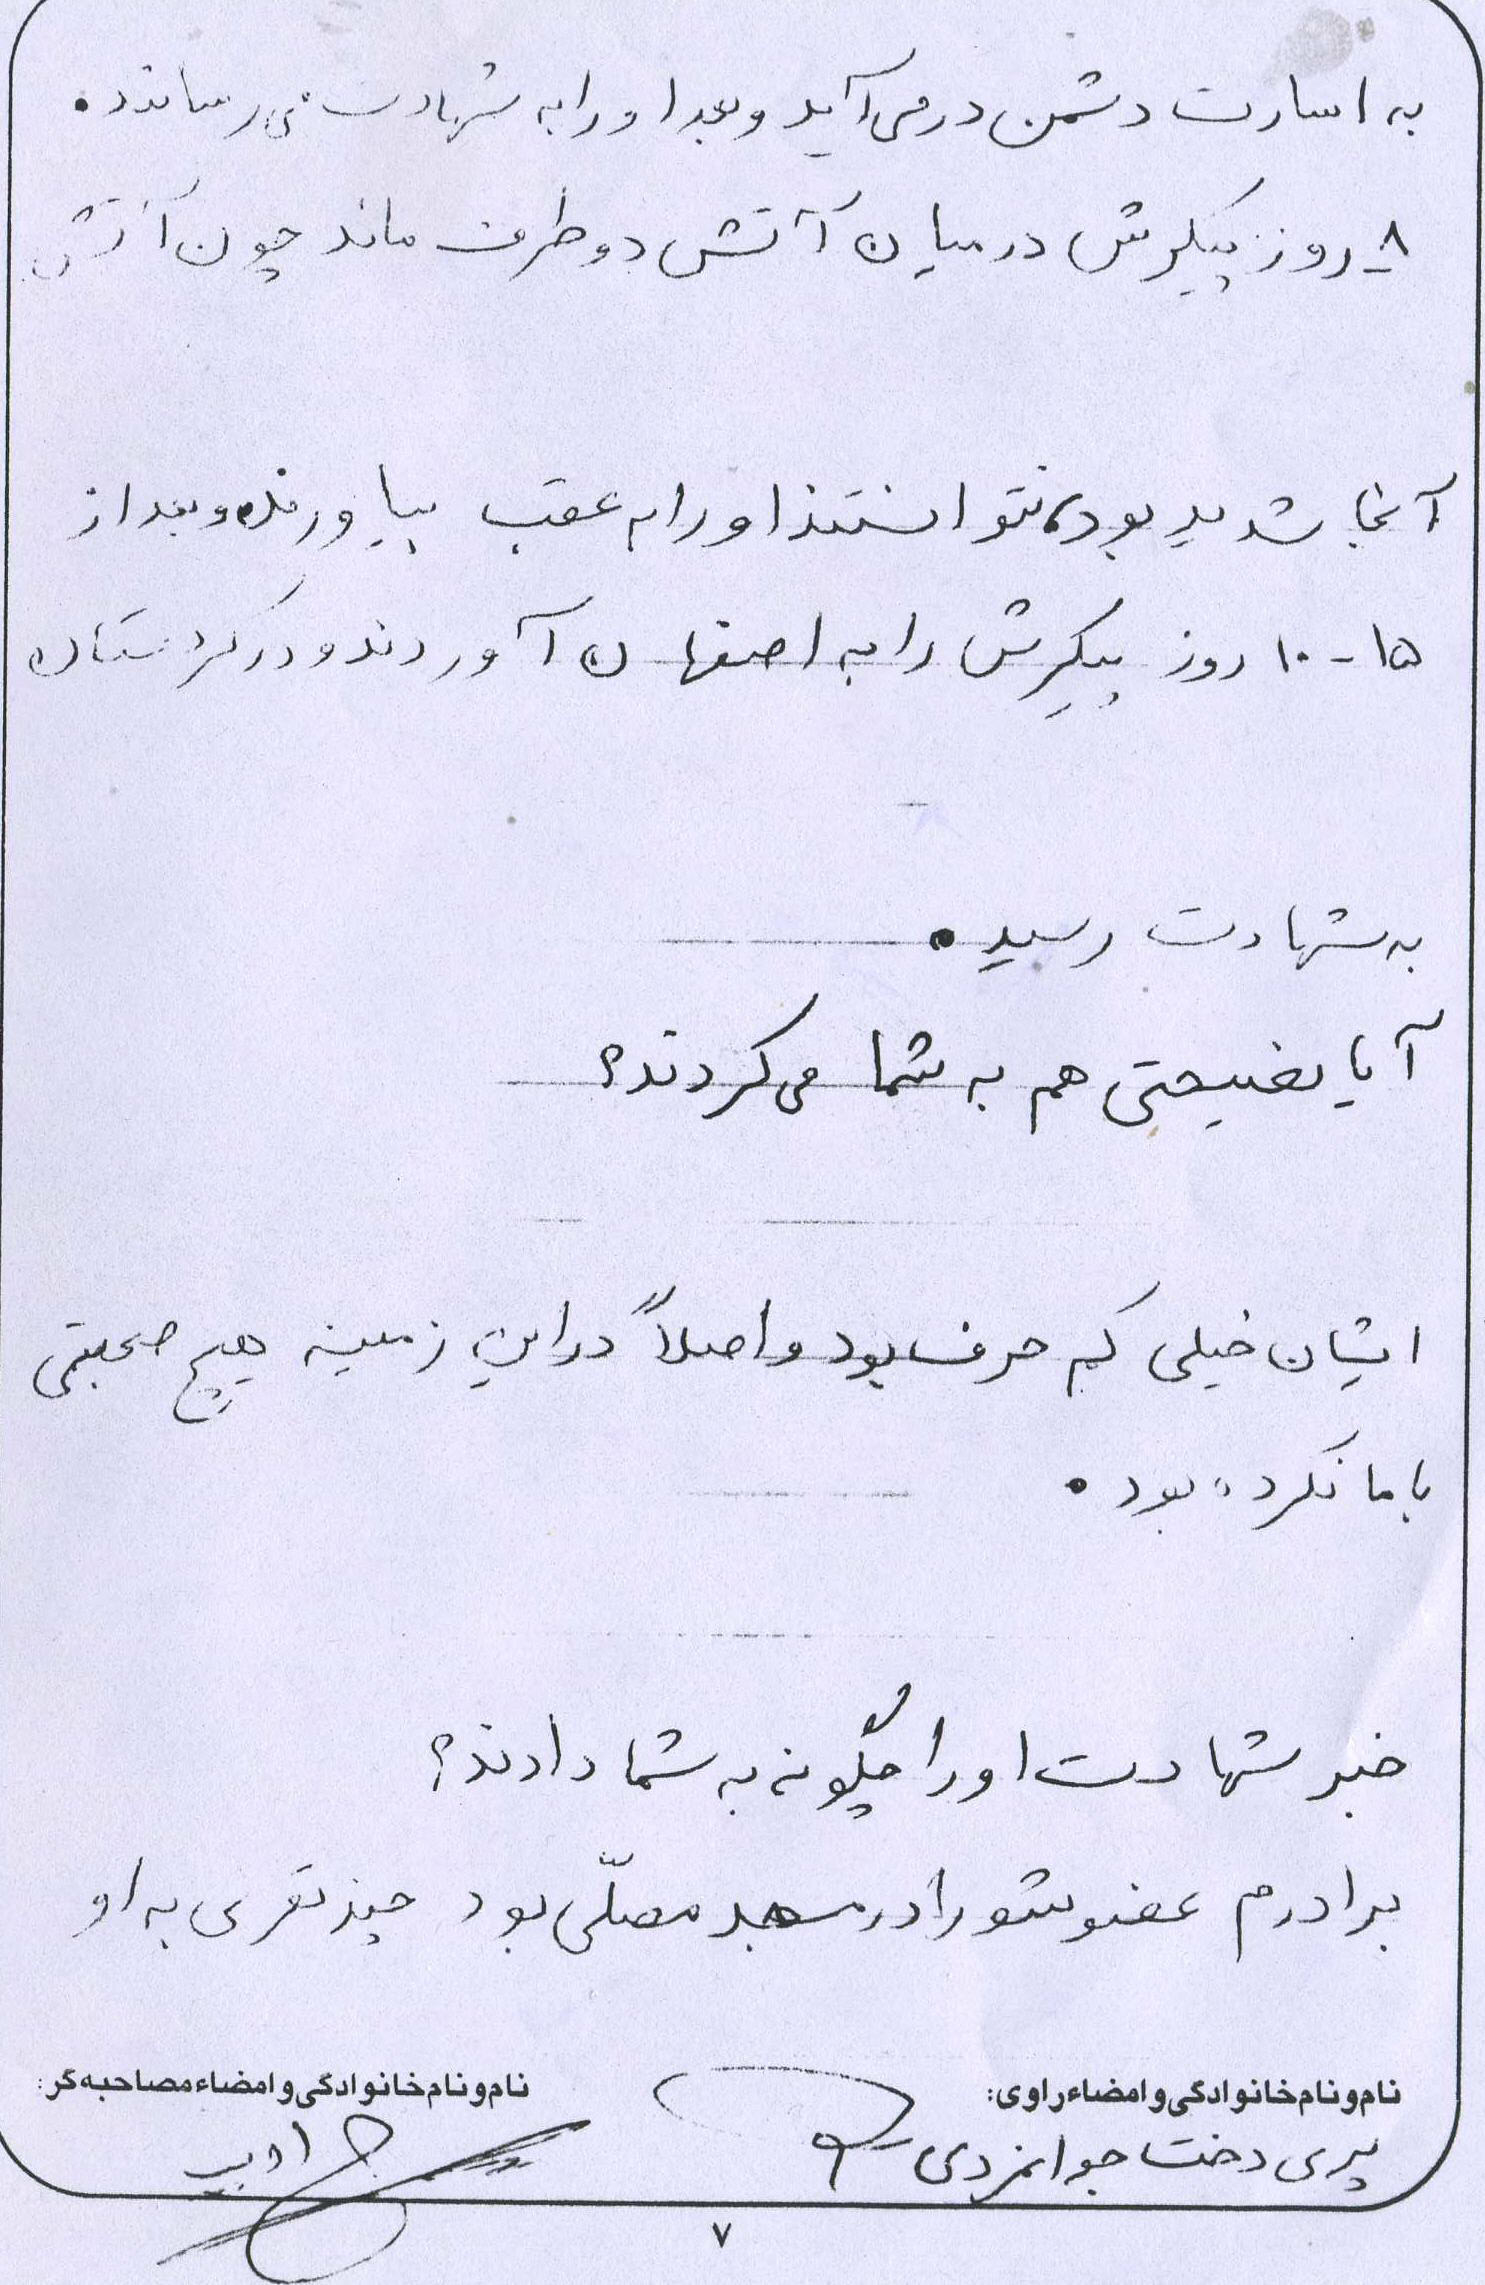 به اسارت دشمن درمی‌آید و بعد او را به شهادت می‌رسانند.
۸ـ روز پیکرش در میان آتش دو طرف ماند چون آتش
آنجا شدید بود، نتوانستند او را به عقب بیاورند و بعد از
۱۵-۱۰ روز پیکرش را به اصفهان آوردند و در کردستان
به شهادت رسید.
آیا نصیحتی هم به شما می‌کردند؟
ایشان خیلی کم حرف بود و اصلاً در این زمینه هیچ صحبتی
با ما نکرده بود.
خبر شهادت او را چگونه به شما دادند؟
برادرم عضو شورا در مسجد مصلّی بود چند نفری به او
نام و نام خانوادگی و امضاء راوی:
نام و نام خانوادگی و امضاء مصاحبه‌گر:
پری دخت جوانمردی
ادیب
۷